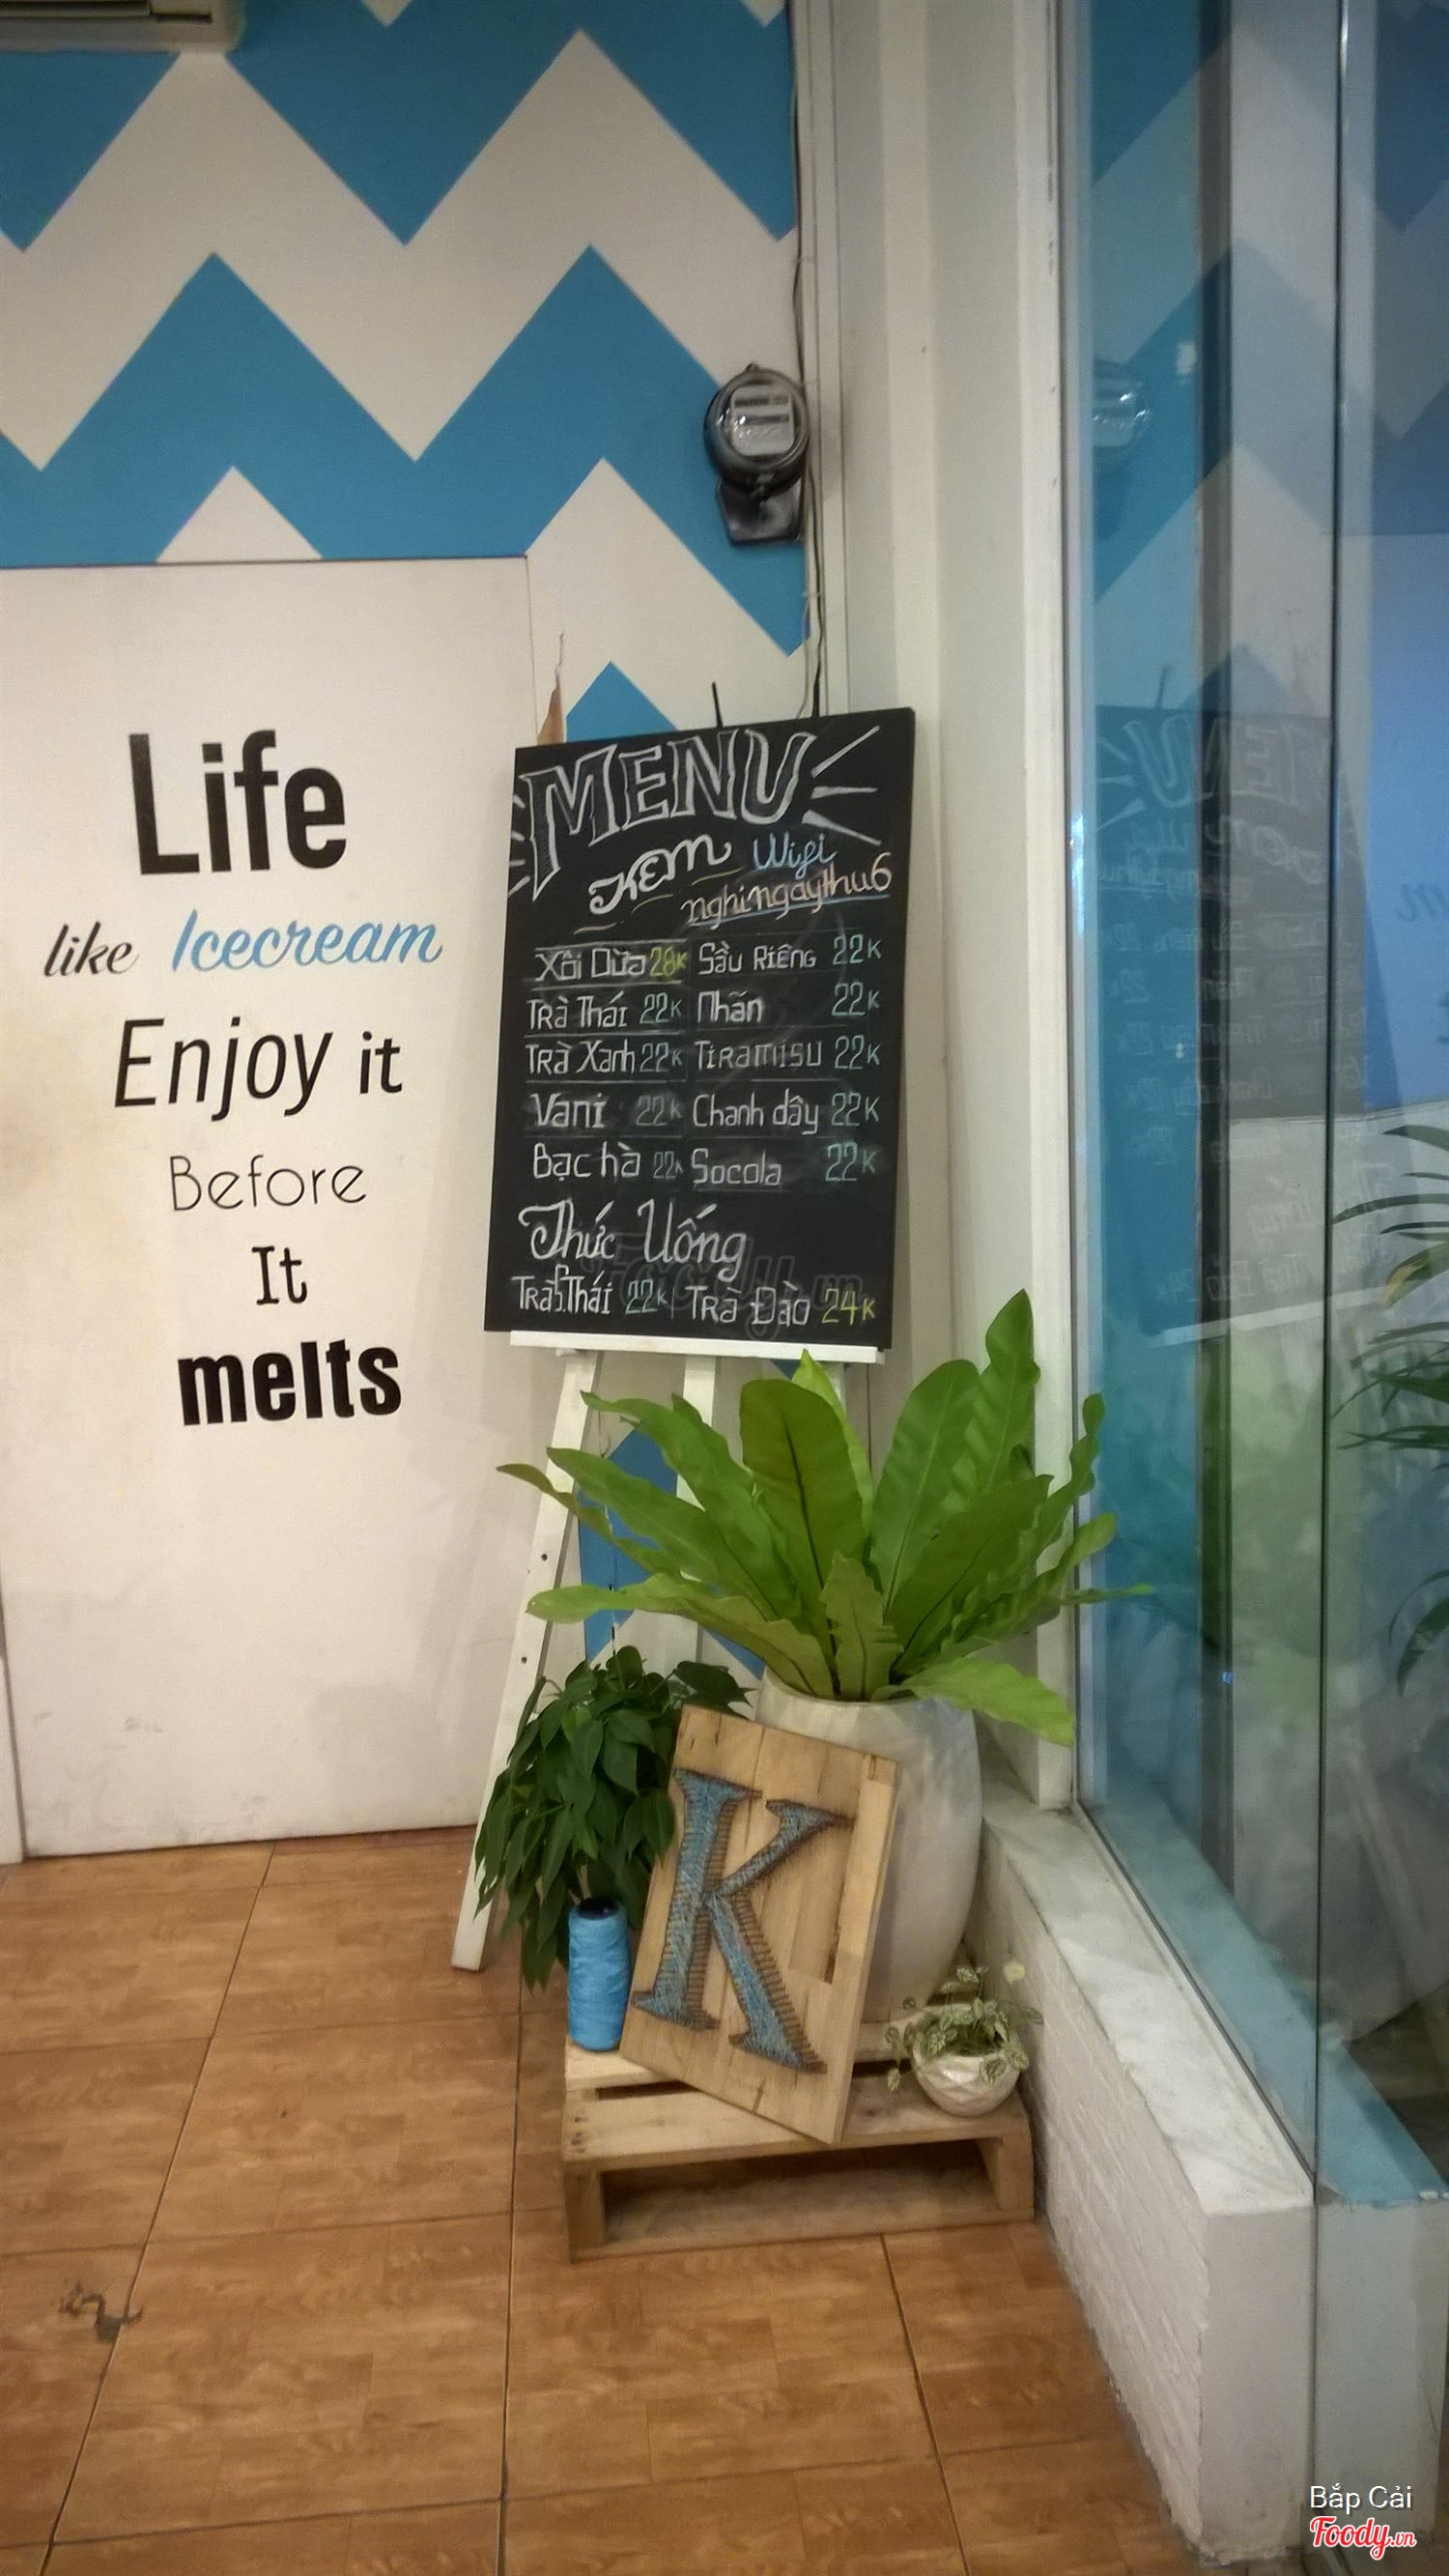 Life
like Icecream
Enjoy it
Before
It
melts
MENU
Kem Wifi
nghingaythu6
Xôi Dừa 28K Sầu Riêng 22K
Trà Thái 22K Nhãn 22K
Trà Xanh 22K Tiramisu 22K
Vani 22K Chanh dây 22K
Bạc hà 22K Socola 22K
Thức Uống
Trà S.Thái 22K Trà Đào 24K
Foody.vn
K
Bắp Cải
Foody.vn